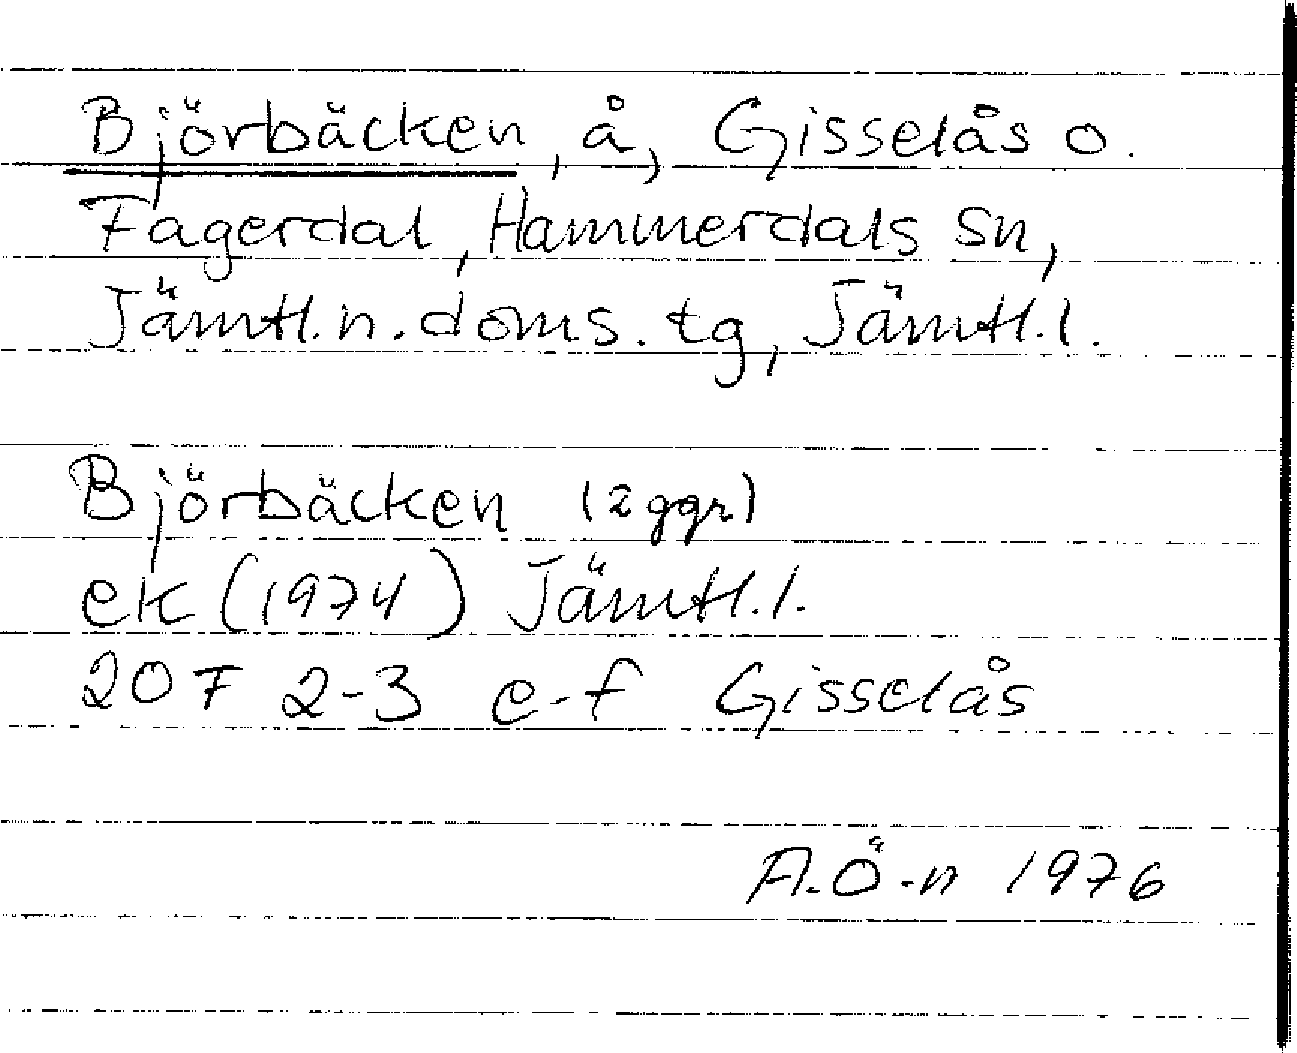 Björbäcken, å, Gisselås o.
Fagerdal, Hammerdals sn,
Jämtl.n.doms.tg, Jämtl.l.
Björbäcken (2 ggr)
ek (1974) Jämtl.l.
20F 2-3 e-f Gisselås
A.Ö-n 1976